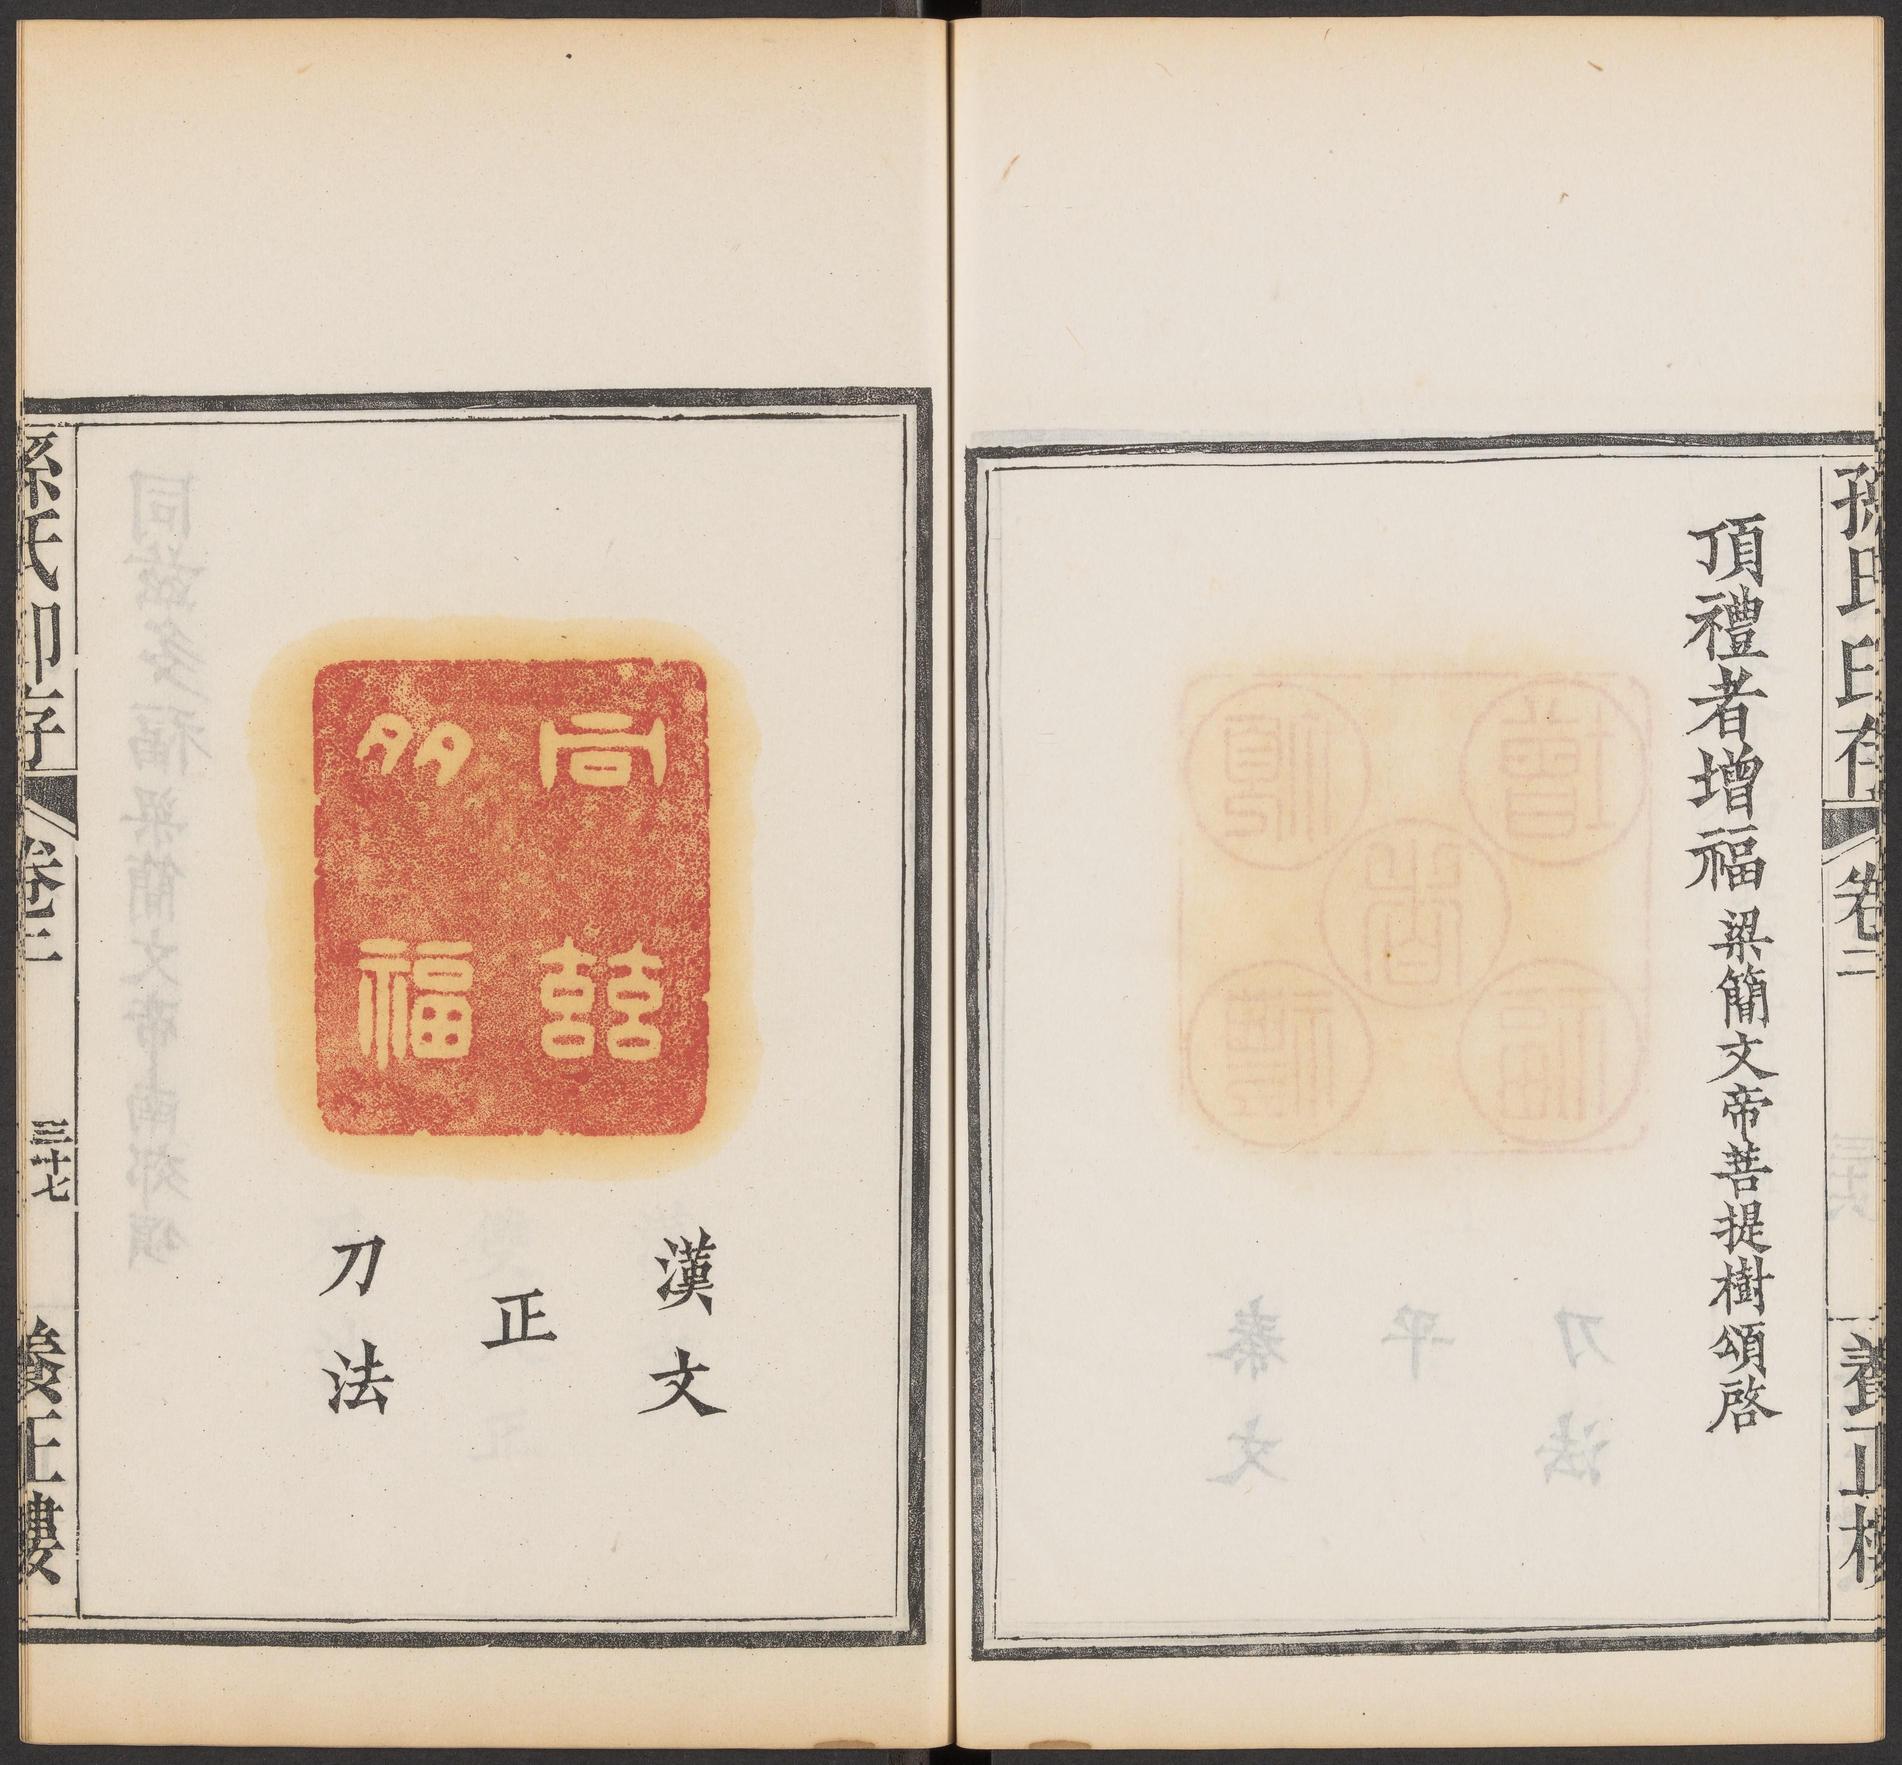 孫氏印存 卷二 養正樓
頂禮者增福 梁簡文帝菩提樹頌啓
同喆多福
漢文
正
刀法
孫氏印存 卷二 三十七 養正樓